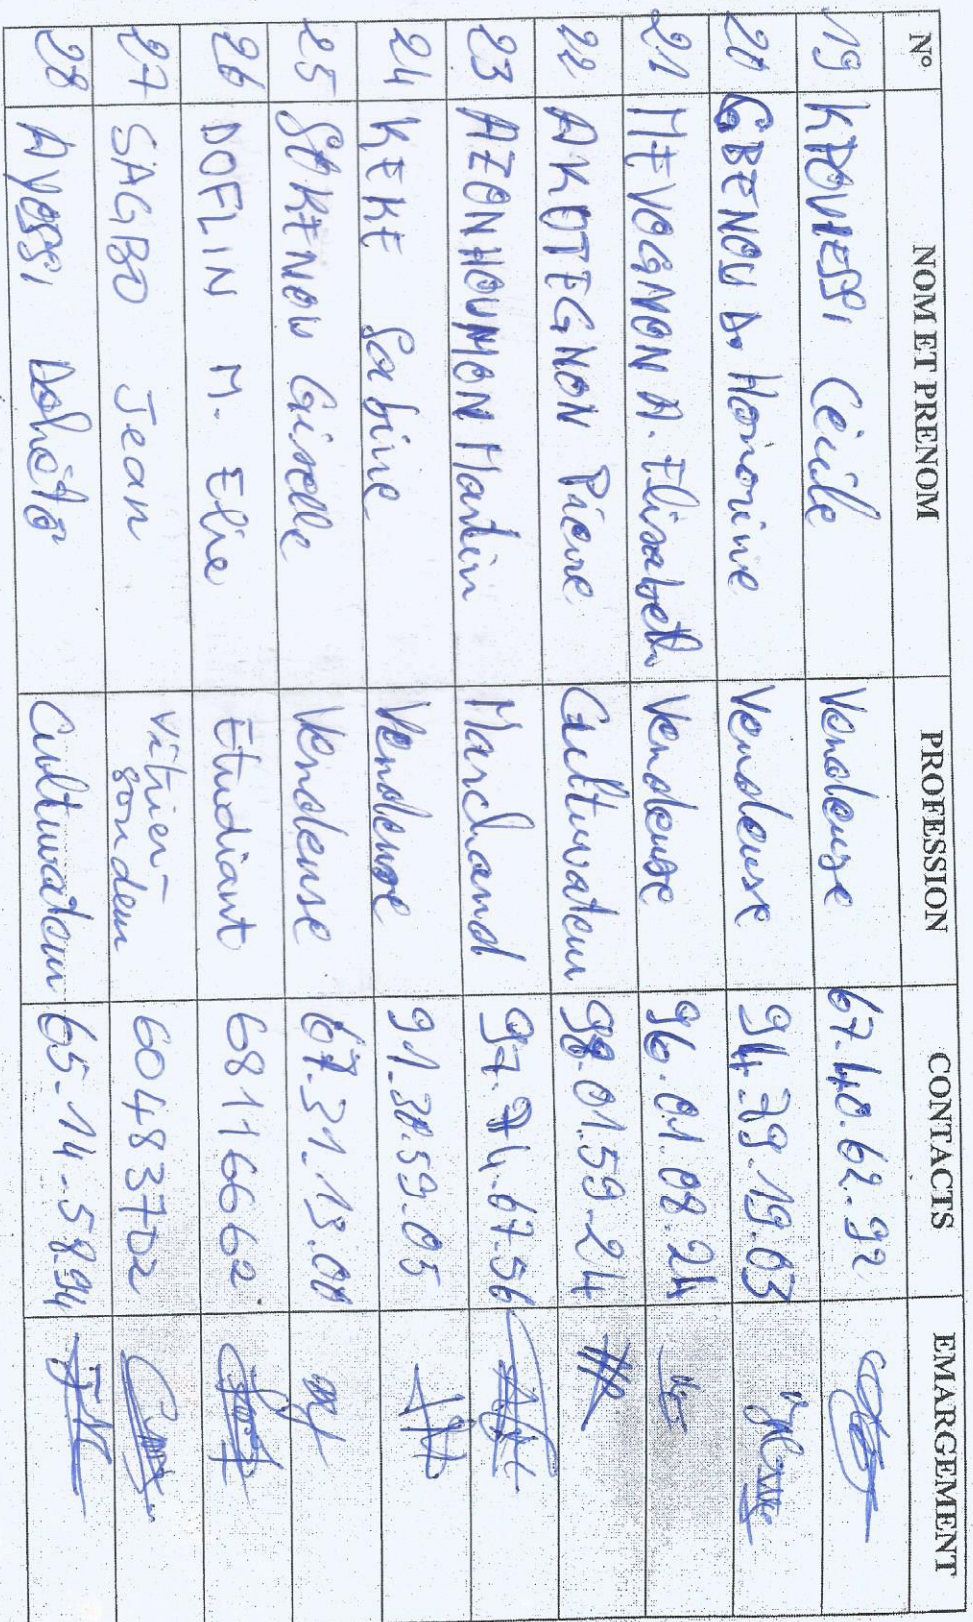 N° NOM ET PRENOM PROFESSION CONTACTS EMARGEMENT
19 KPOVIESSI Cécile Vendeuse 67.40.62.92
20 GBENOU D. Honorine Vendeuse 94.79.19.03
21 MEVOGNON A. Elisabeth Vendeuse 96.01.08.24
22 AKOTEGNON Pierre Cultivateur 98.01.59-24
23 AZONHOUMON Martin Marchand 97.74.67.56
24 KEKE Sabine Vendeuse 91.30.59.05
25 SOKENOU Gisèle Vendeuse 67.31.13.00
26 DOFLIN M. Elie Etudiant 68116662
27 SAGBO Jean Vitrier soudeur 60483702
28 AYOSSI Dohéto Cultivateur 65-14-58.94